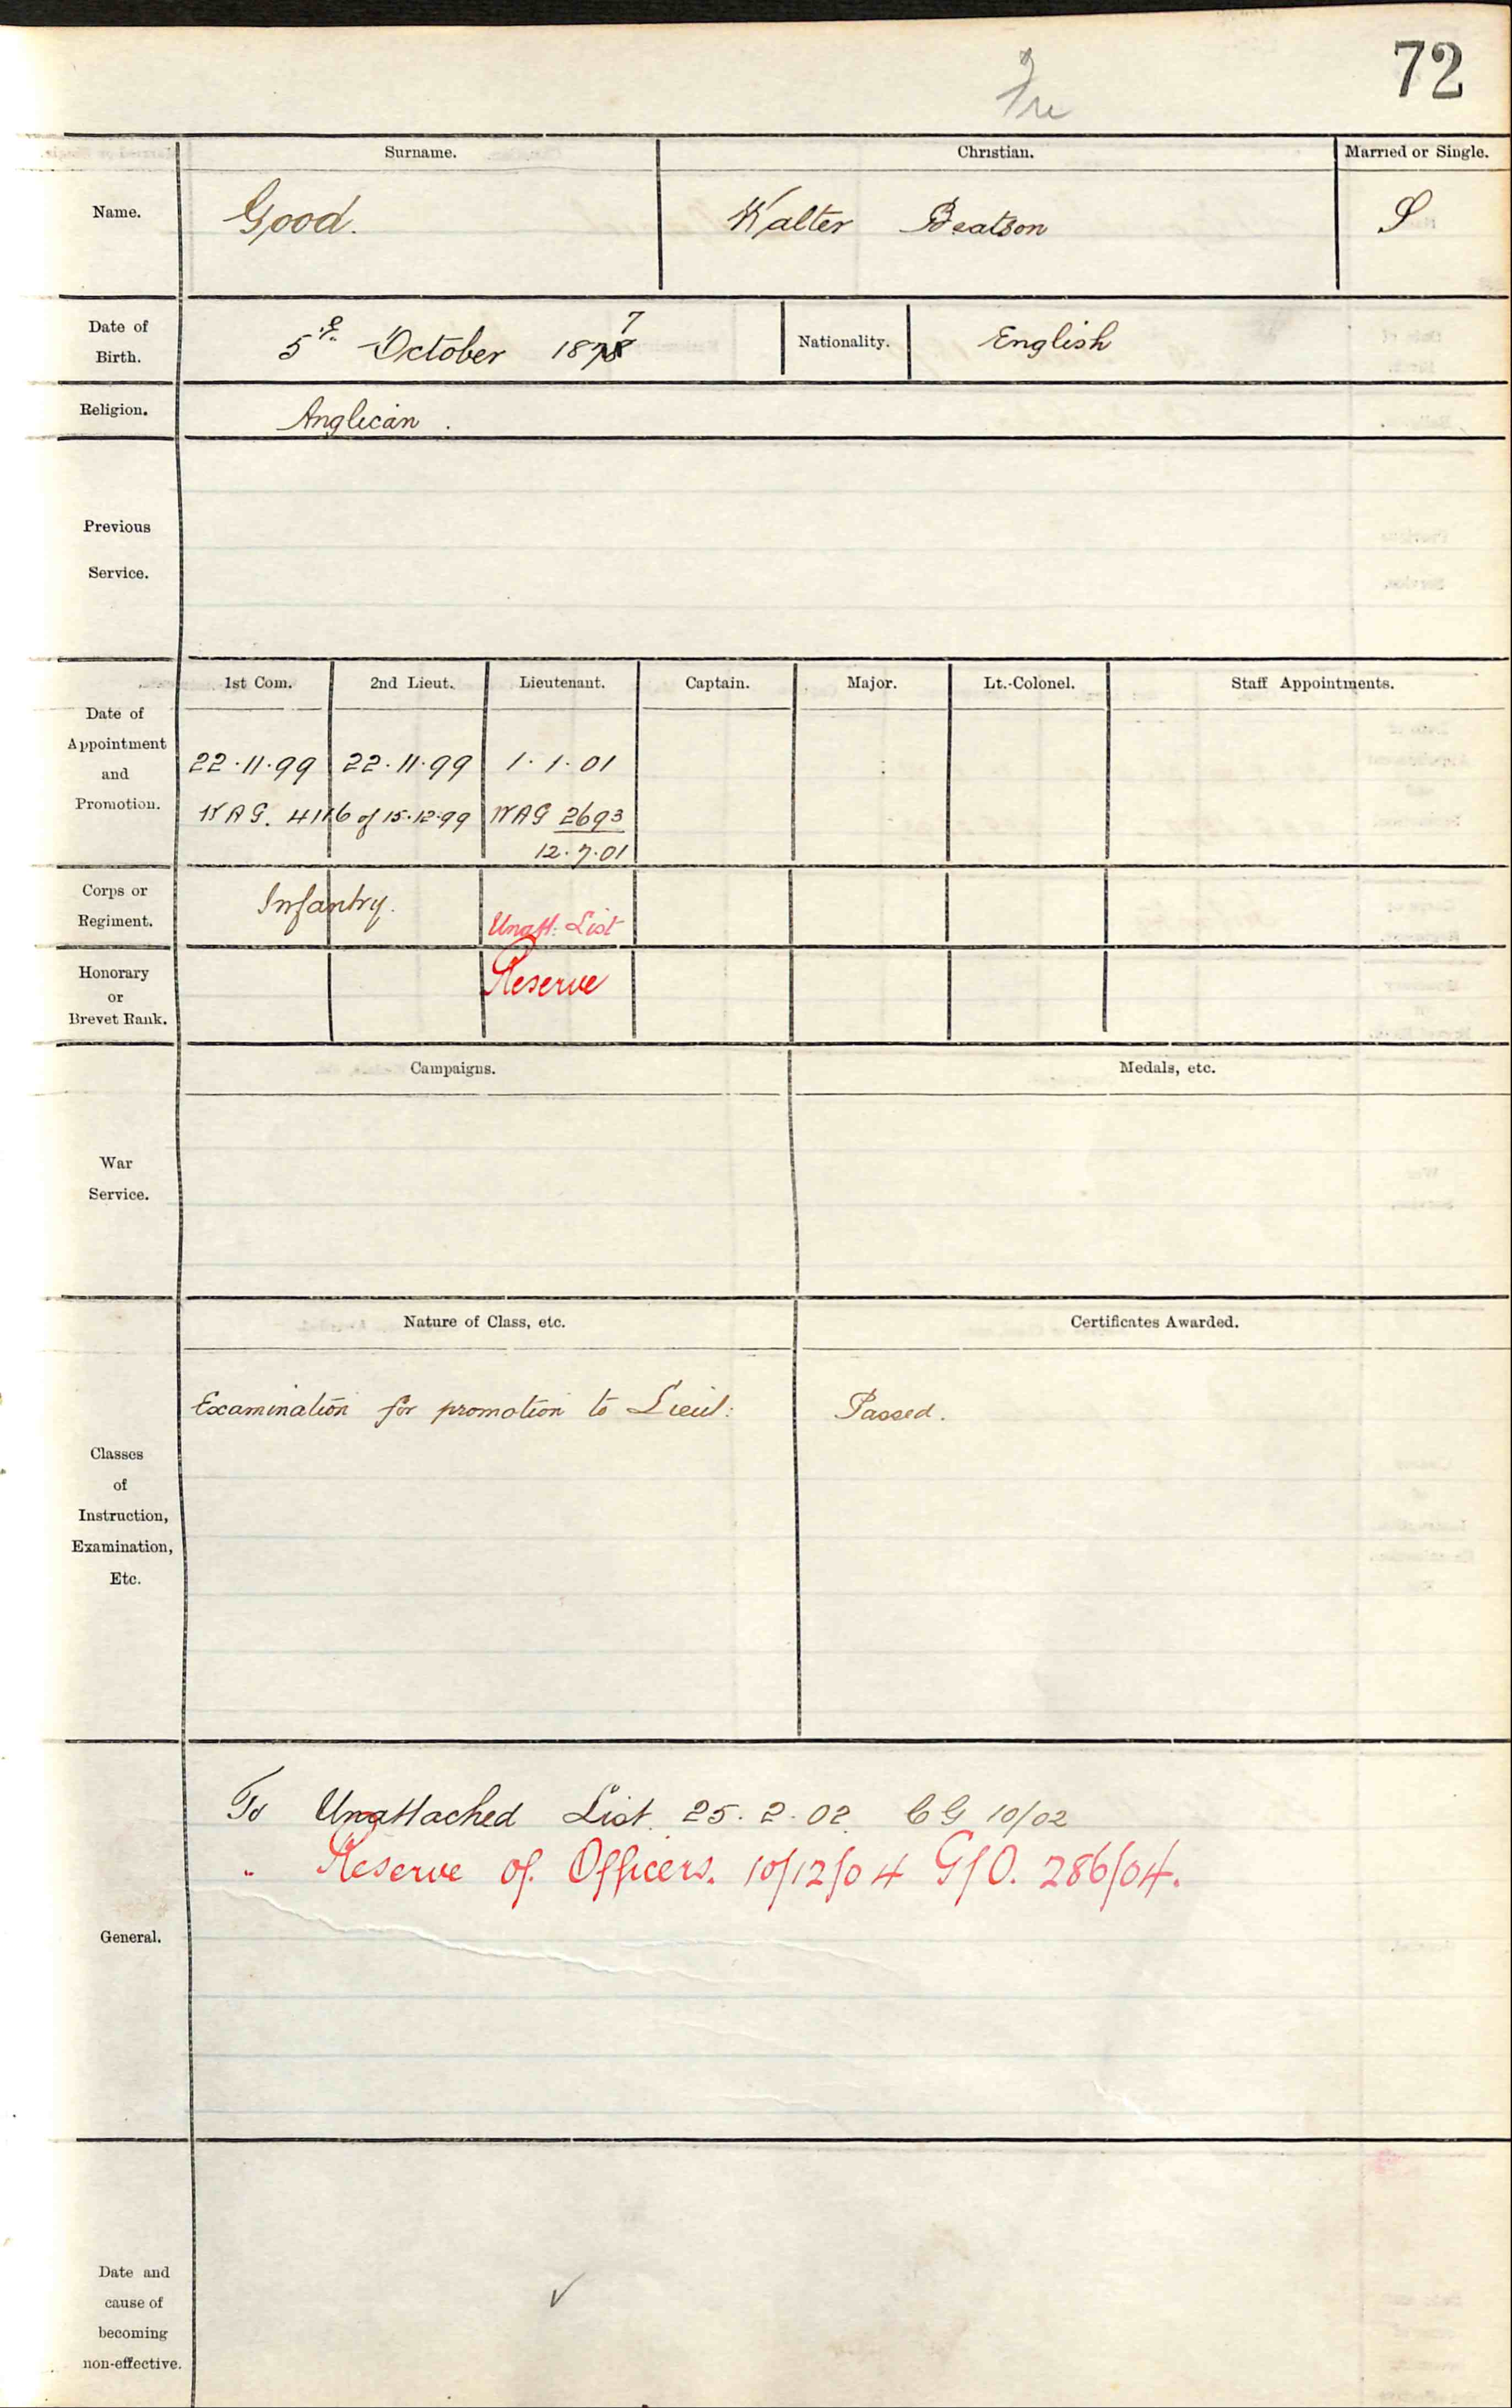 72
Fre
Surname. Christian. Married or Single.
Name. Good. Walter Beatson S
Date of Birth. 5th October 1878 7 Nationality. English
Religion. Anglican.
Previous Service.
1st Com. 2nd Lieut. Lieutenant. Captain. Major. Lt.-Colonel. Staff Appointments.
Date of Appointment and Promotion.
22.11.99 22.11.99 1.1.01
WAG. 4116 of 15.12.99 WAG 2693
12.7.01
Corps or Regiment. Infantry. Unatt: List
Honorary or Brevet Rank. Reserve
Campaigns. Medals, etc.
War Service.
Nature of Class, etc. Certificates Awarded.
Examination for promotion to Lieut: Passed.
Classes of Instruction, Examination, Etc.
To Unattached List. 25.2.02. CG 10/02
" Reserve of Officers. 10/12/04 G/O. 286/04.
General.
Date and cause of becoming non-effective.